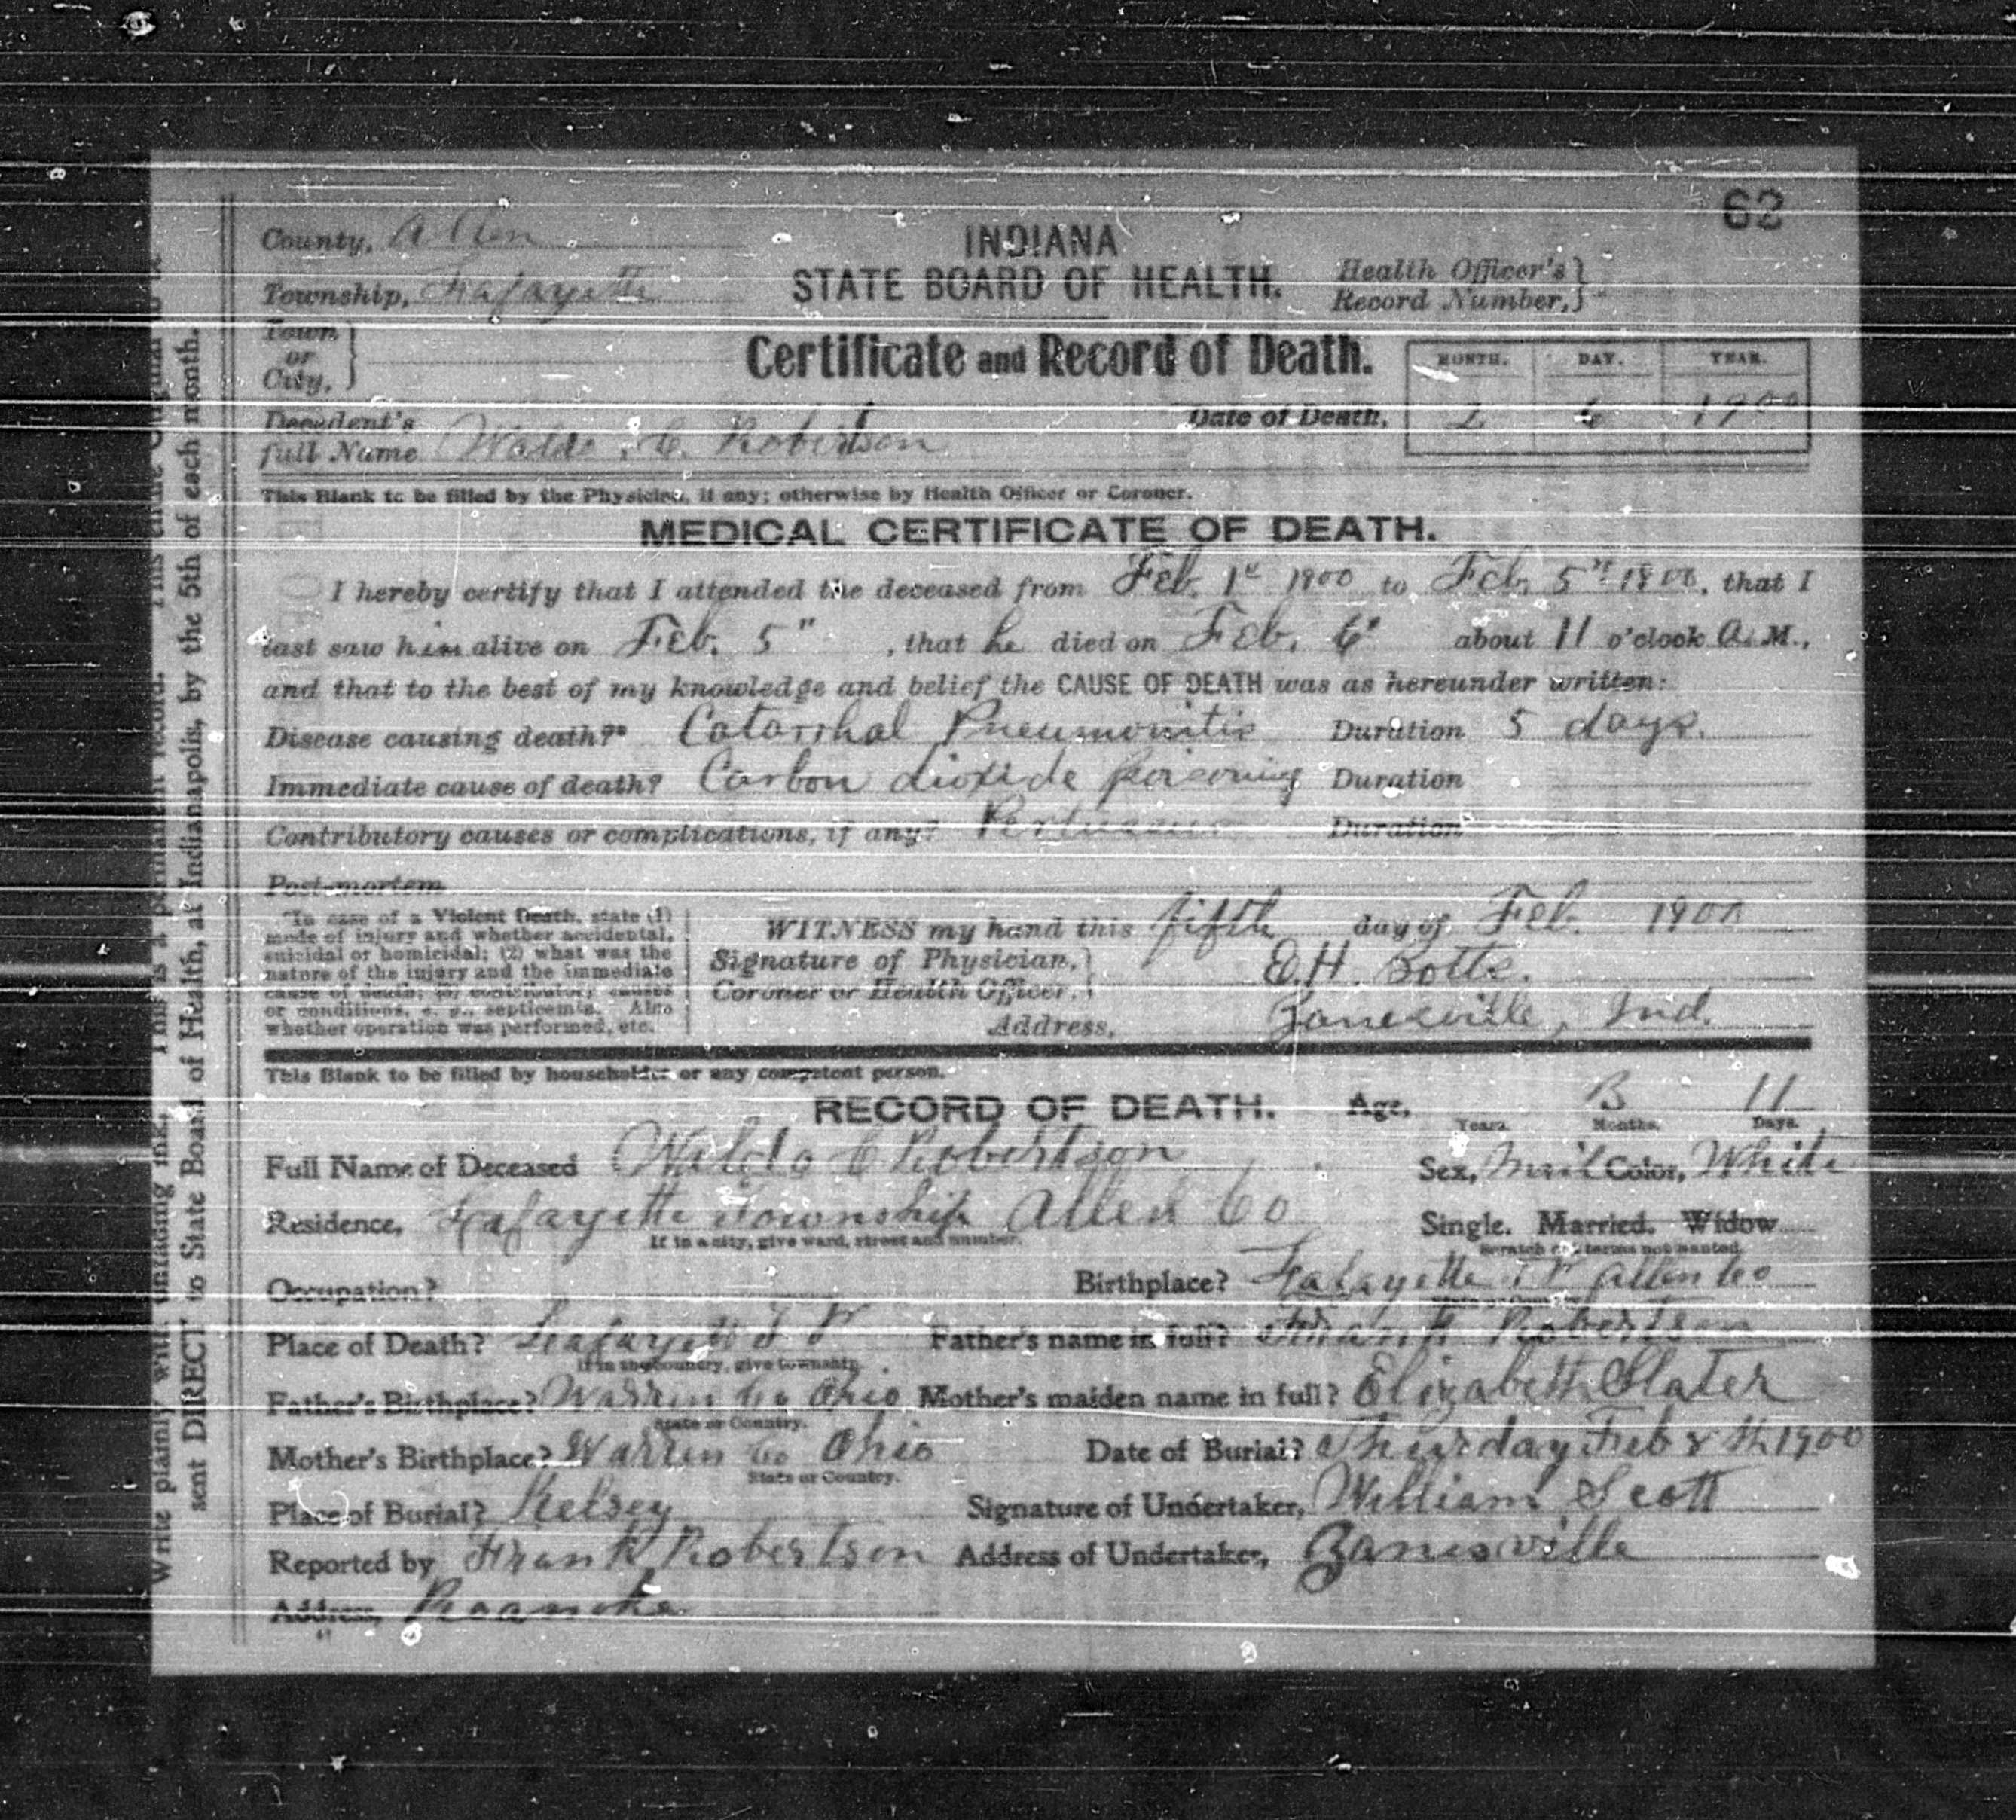 62
County, Allen
Township, Lafayette
Town or City,
INDIANA
STATE BOARD OF HEALTH.
Health Officer's Record Number,
Certificate and Record of Death.
MONTH. DAY. YEAR.
Date of Death, 2 6 1900
Decedent's full Name Waldo. C. Robertson
This Blank to be filled by the Physician, if any; otherwise by Health Officer or Coroner.
MEDICAL CERTIFICATE OF DEATH.
I hereby certify that I attended the deceased from Feb. 1st 1900 to Feb. 5" 1900, that I
last saw him alive on Feb. 5", that he died on Feb. 6" about 11 o'clock A.M.,
and that to the best of my knowledge and belief the CAUSE OF DEATH was as hereunder written:
Disease causing death?* Catarrhal Pneumonitis Duration 5 days.
Immediate cause of death? Carbon dioxide poisoning Duration
Contributory causes or complications, if any? Pertussis Duration
Post-mortem
*In case of a Violent Death, state (1)
mode of injury and whether accidental,
suicidal or homicidal; (2) what was the
nature of the injury and the immediate
cause of death; (3) contributory causes
or conditions, e. g., septicemia. Also
whether operation was performed, etc.
WITNESS my hand this fifth day of Feb. 1900
Signature of Physician, Coroner or Health Officer, E.H. Botts.
Address, Zanesville, Ind.
This Blank to be filled by householder or any competent person.
RECORD OF DEATH. Age, Years. 3 Months. 11 Days.
Full Name of Deceased Waldo C Robertson Sex, Mail Color, White
Residence, Lafayette Township Allen Co Single. Married. Widow
If in a city, give ward, street and number. Scratch out terms not wanted.
Occupation? Birthplace? Lafayette T P Allen Co
State or Country.
Place of Death? Lafayett T P Father's name in full? Frank Robertson
If in the country, give township.
Father's Birthplace? Warren Co Ohio Mother's maiden name in full? Elizabeth Slater
State or Country.
Mother's Birthplace? Warren Co Ohio Date of Burial? Thurday Feb 8 th 1900
State or Country.
Place of Burial? Kelsey Signature of Undertaker, William Scott
Reported by Frank Robertson Address of Undertaker, Zanesville
Address, Roanoke
Write plainly with unfading ink. This is a permanent record. This entire Original to be
sent DIRECT to State Board of Health, at Indianapolis, by the 5th of each month.